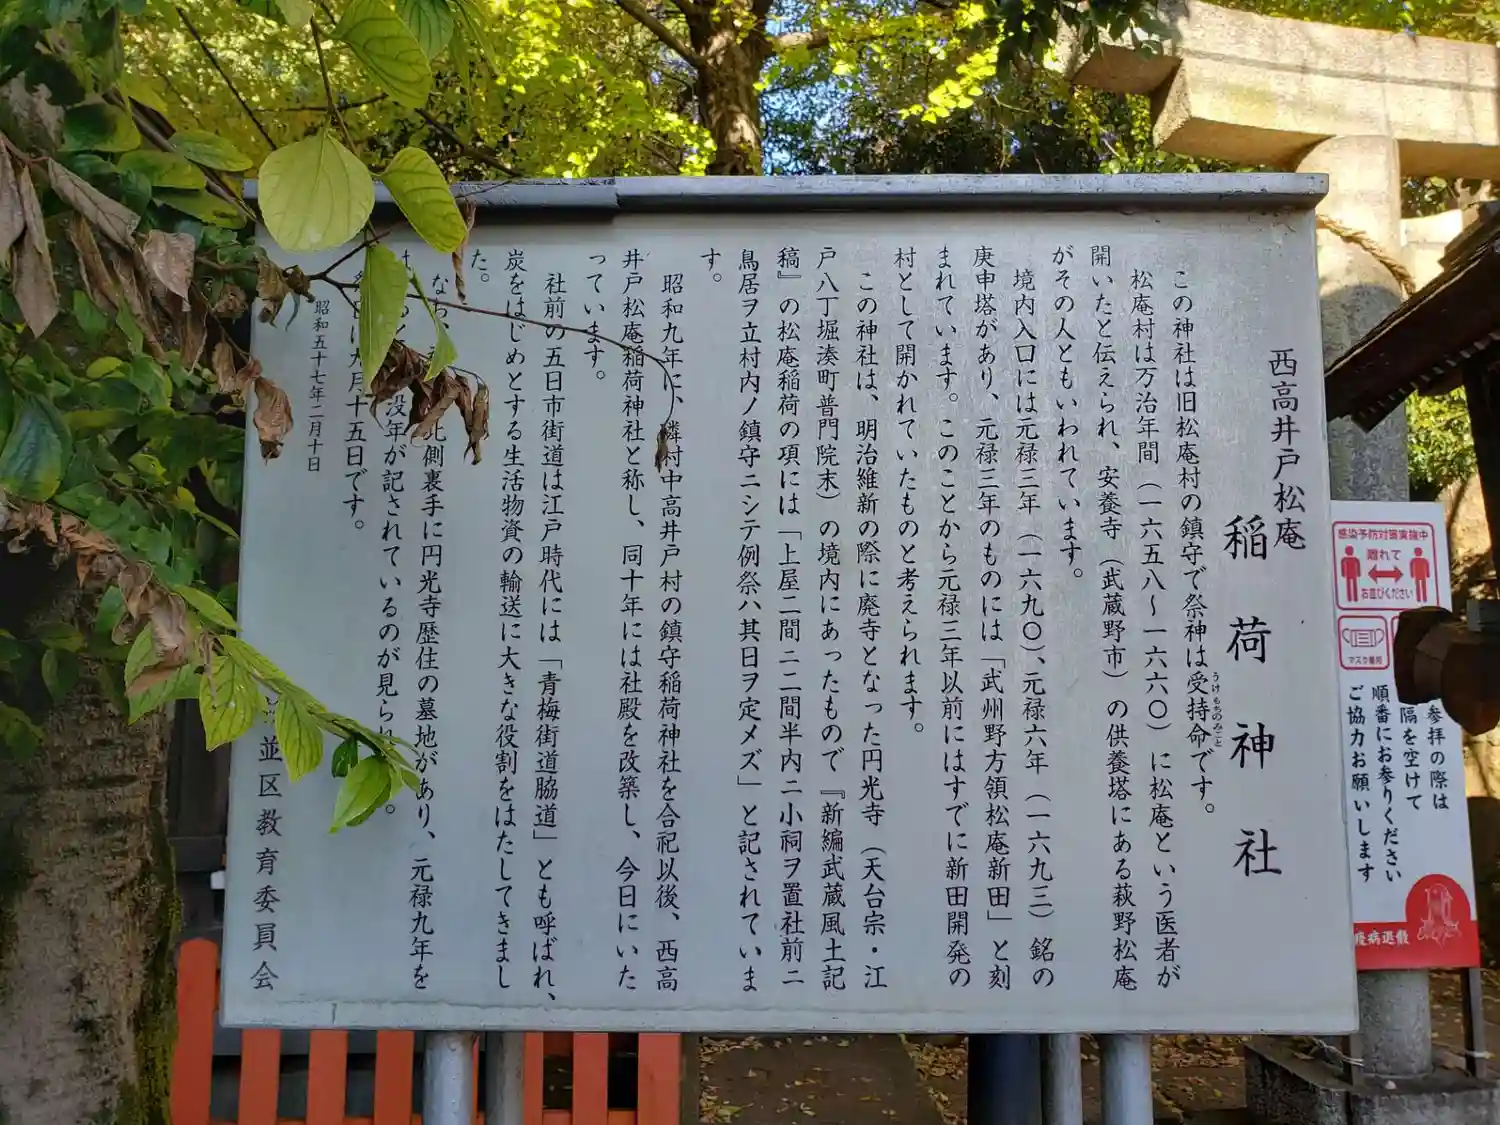 西高井戸松庵
稲荷神社
この神社は旧松庵村の鎮守で祭神は受持命です。
うけもちのみこと
松庵村は万治年間（一六五八～一六六〇）に松庵という医者が
開いたと伝えられ、安養寺（武蔵野市）の供養塔にある萩野松庵
がその人ともいわれています。
境内入口には元禄三年（一六九〇）、元禄六年（一六九三）銘の
庚申塔があり、元禄三年のものには「武州野方領松庵新田」と刻
まれています。このことから元禄三年以前にはすでに新田開発の
村として開かれていたものと考えられます。
この神社は、明治維新の際に廃寺となった円光寺（天台宗・江
戸八丁堀湊町普門院末）の境内にあったもので『新編武蔵風土記
稿』の松庵稲荷の項には「上屋二間ニ二間半内ニ小祠ヲ置社前ニ
鳥居ヲ立村内ノ鎮守ニシテ例祭ハ其日ヲ定メズ」と記されていま
す。
昭和九年に、隣村中高井戸村の鎮守稲荷神社を合祀以後、西高
井戸松庵稲荷神社と称し、同十年には社殿を改築し、今日にいた
っています。
社前の五日市街道は江戸時代には「青梅街道脇道」とも呼ばれ、
炭をはじめとする生活物資の輸送に大きな役割をはたしてきまし
た。
なお、北側裏手に円光寺歴住の墓地があり、元禄九年を
没年が記されているのが見られ。
九月十五日です。
昭和五十七年二月十日
並区教育委員会
感染予防対策実施中
離れて
お並びください
マスク着用
参拝の際は
隔を空けて
順番にお参りください
ご協力お願いします
疫病退散